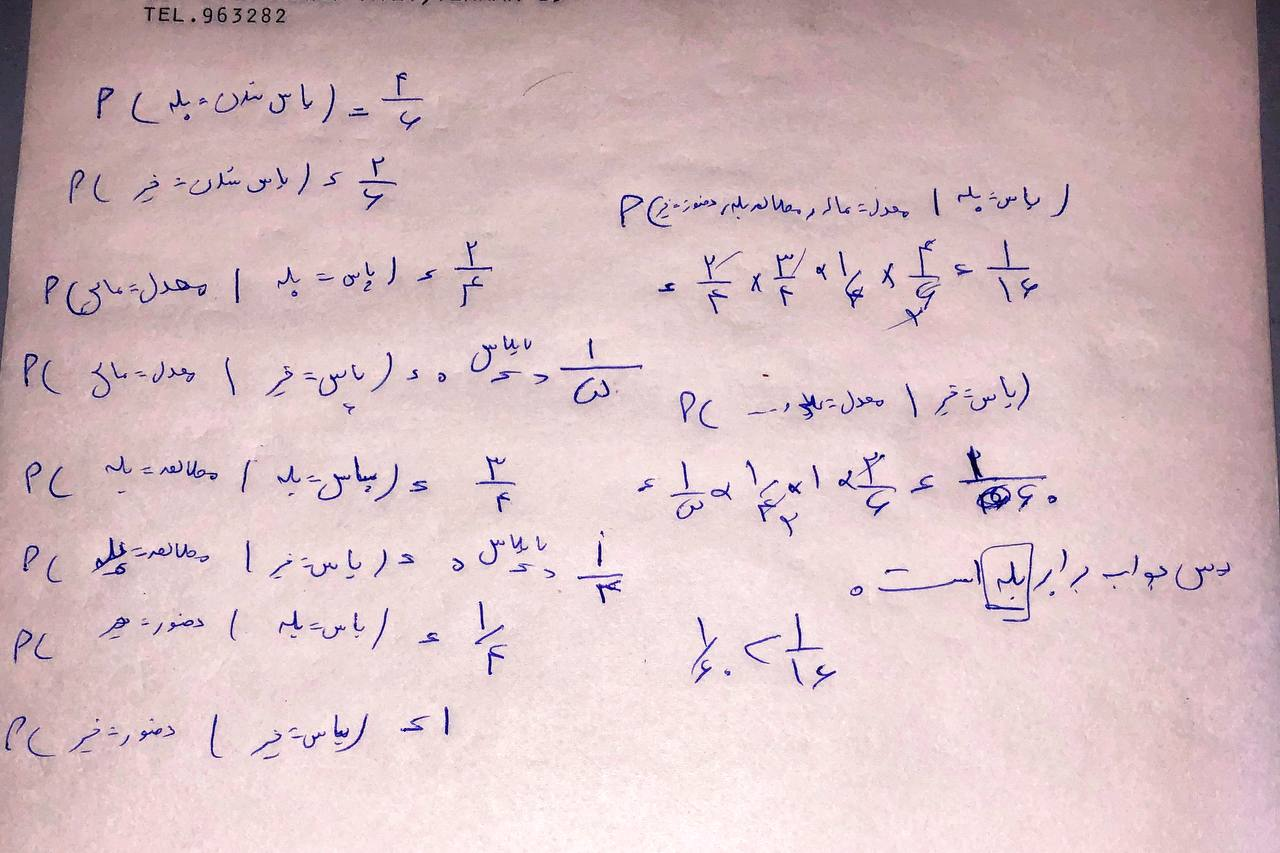 TEL.963282
P(پاس شدن=بله) = ۴/۶
P(پاس شدن=خیر) = ۲/۶
P(معدل=عالی | پاس=بله) = ۲/۴
P(معدل=عالی | پاس=خیر) = ۰ لاپلاس => ۱/۵
P(مطالعه=بله | پاس=بله) = ۳/۴
P(مطالعه=بله | پاس=خیر) = ۰ لاپلاس => ۱/۴
P(حضور=خیر | پاس=بله) = ۱/۴
P(حضور=خیر | پاس=خیر) = ۱
P(حضور=خیر, مطالعه=بله, معدل=عالی | پاس=بله)
= ۲/۴ × ۳/۴ × ۱/۴ × ۴/۶ = ۱/۱۶
P(... معدل=عالی | پاس=خیر)
= ۱/۵ × ۱/۴ × ۱ × ۲/۶ = ۱/۶۰
پس جواب برابر بله است.
۱/۶۰ < ۱/۱۶